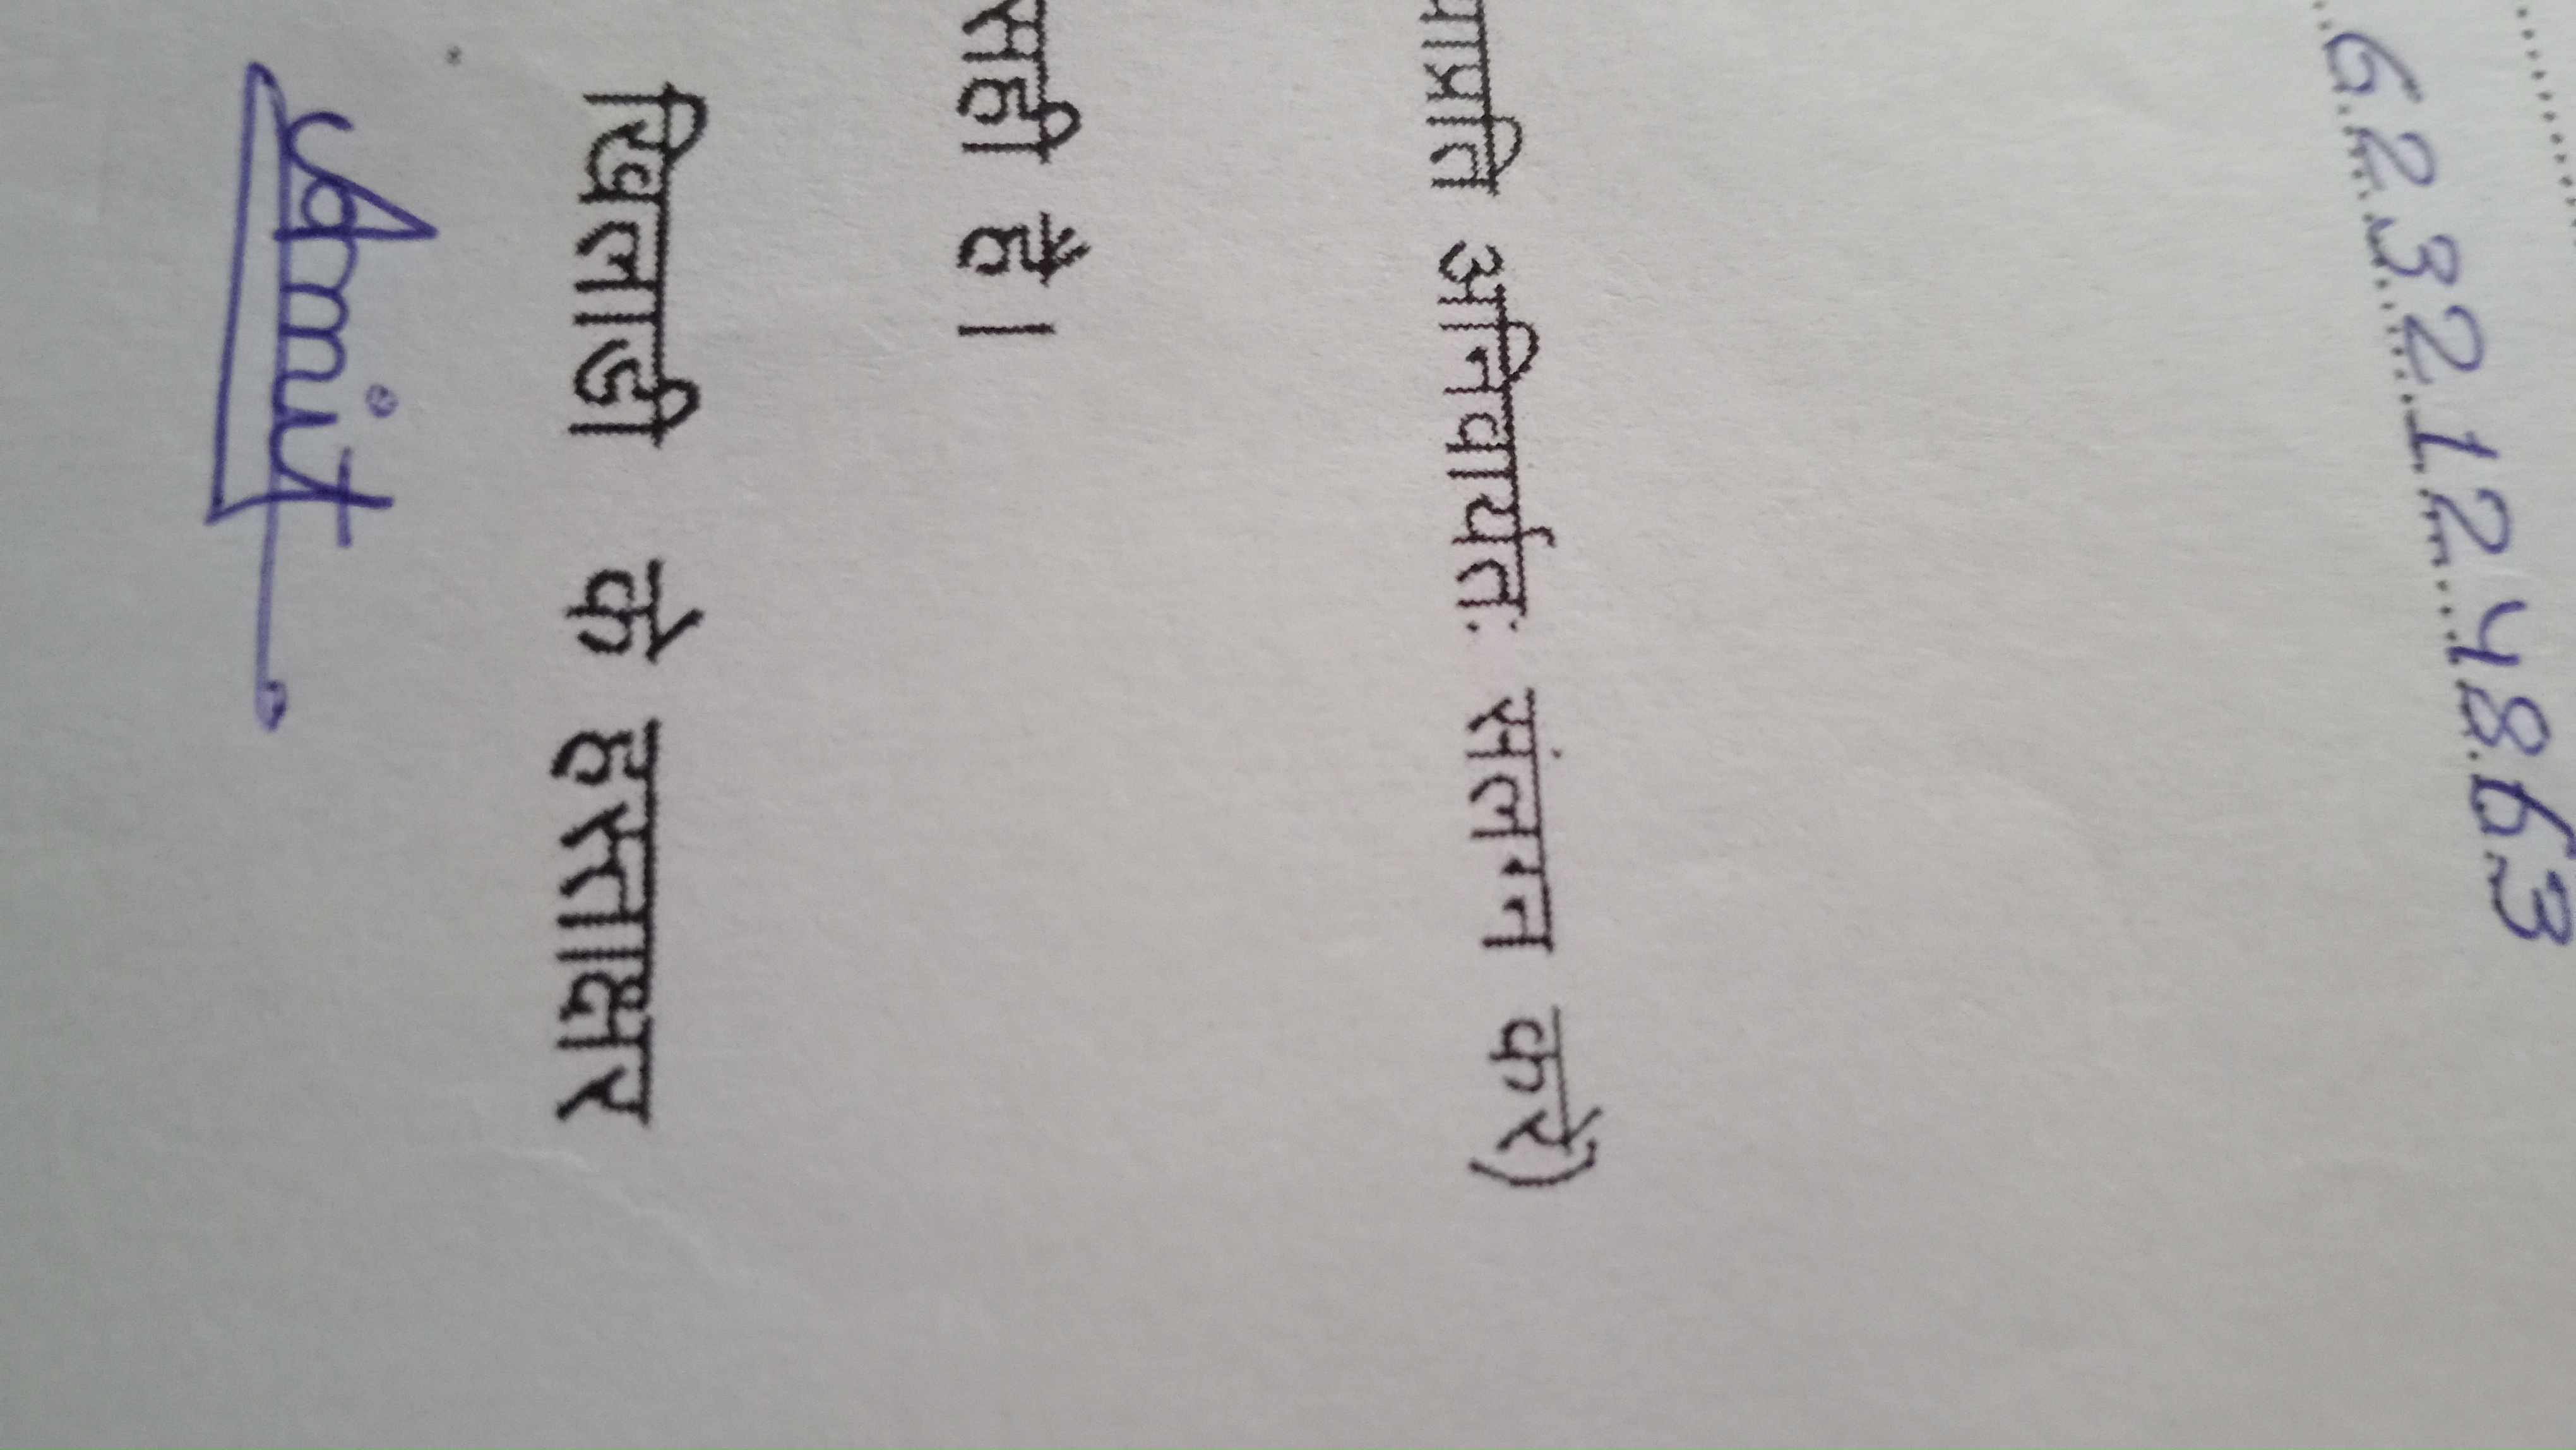 6232124863
याप्रति अनिवार्यतः संलग्न करे)
सही है।
खिलाडी के हस्ताक्षर
Amit